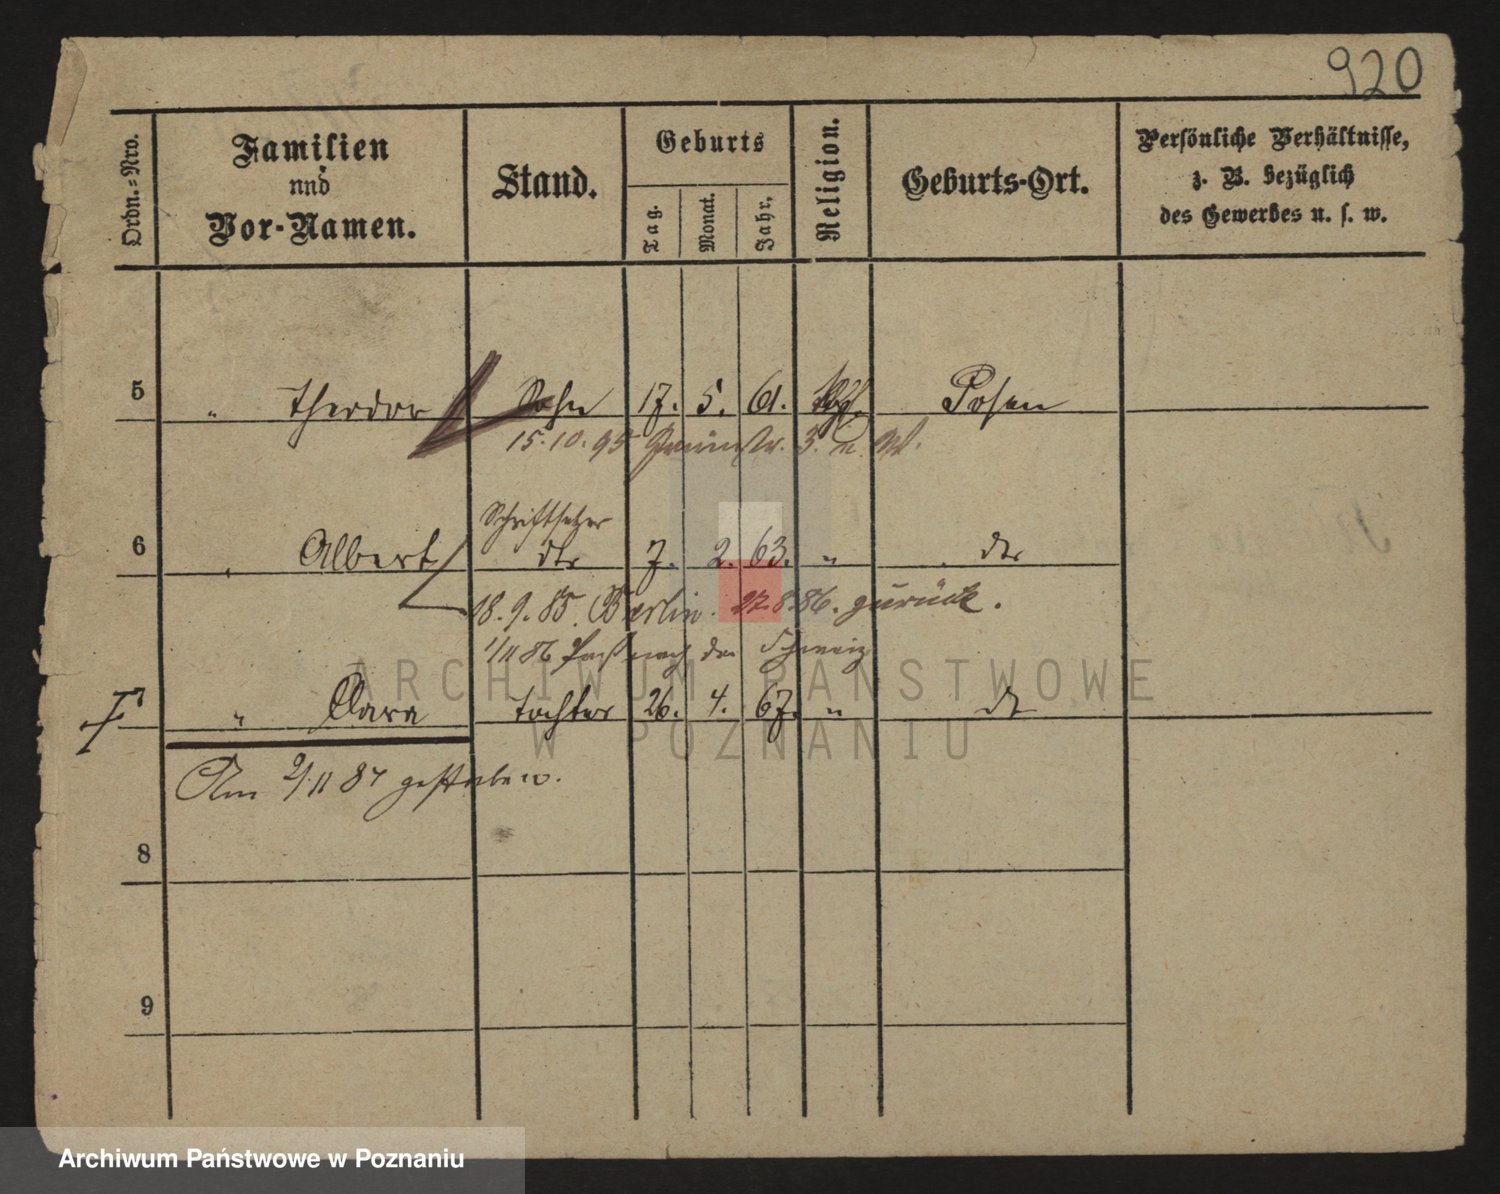 920
Ordn.=Nro.
Familien
und
Vor-Namen.
Stand.
Geburts
Tag.
Monat.
Jahr.
Religion.
Geburts-Ort.
Persönliche Verhältnisse,
z. B. bezüglich
des Gewerbes u. s. w.
5 " Theodor Sohn 17. 5. 61. Posen
15.10.95
Schriftsetzer
6 " Albert dto 7. 2. 63. " dto
18.9.85. Berlin. 27.8.86. zurück.
1/11 86 Paß nach der Schweiz
7 " Clara Tochter 26. 4. 67. " dto
Am 2/11 87 gestorben.
8
9
ARCHIWUM PAŃSTWOWE
W POZNANIU
Archiwum Państwowe w Poznaniu